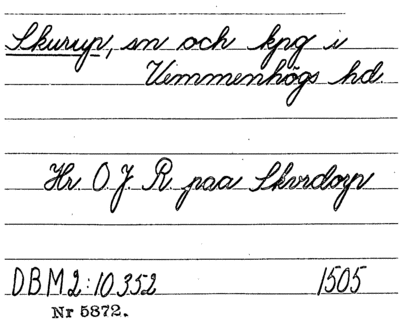 Skurup, sn och kpg i
Vemmenhögs hd.
Hr O. J. R paa Skvrdorp
DBM2:10352 1505
Nr 5872.